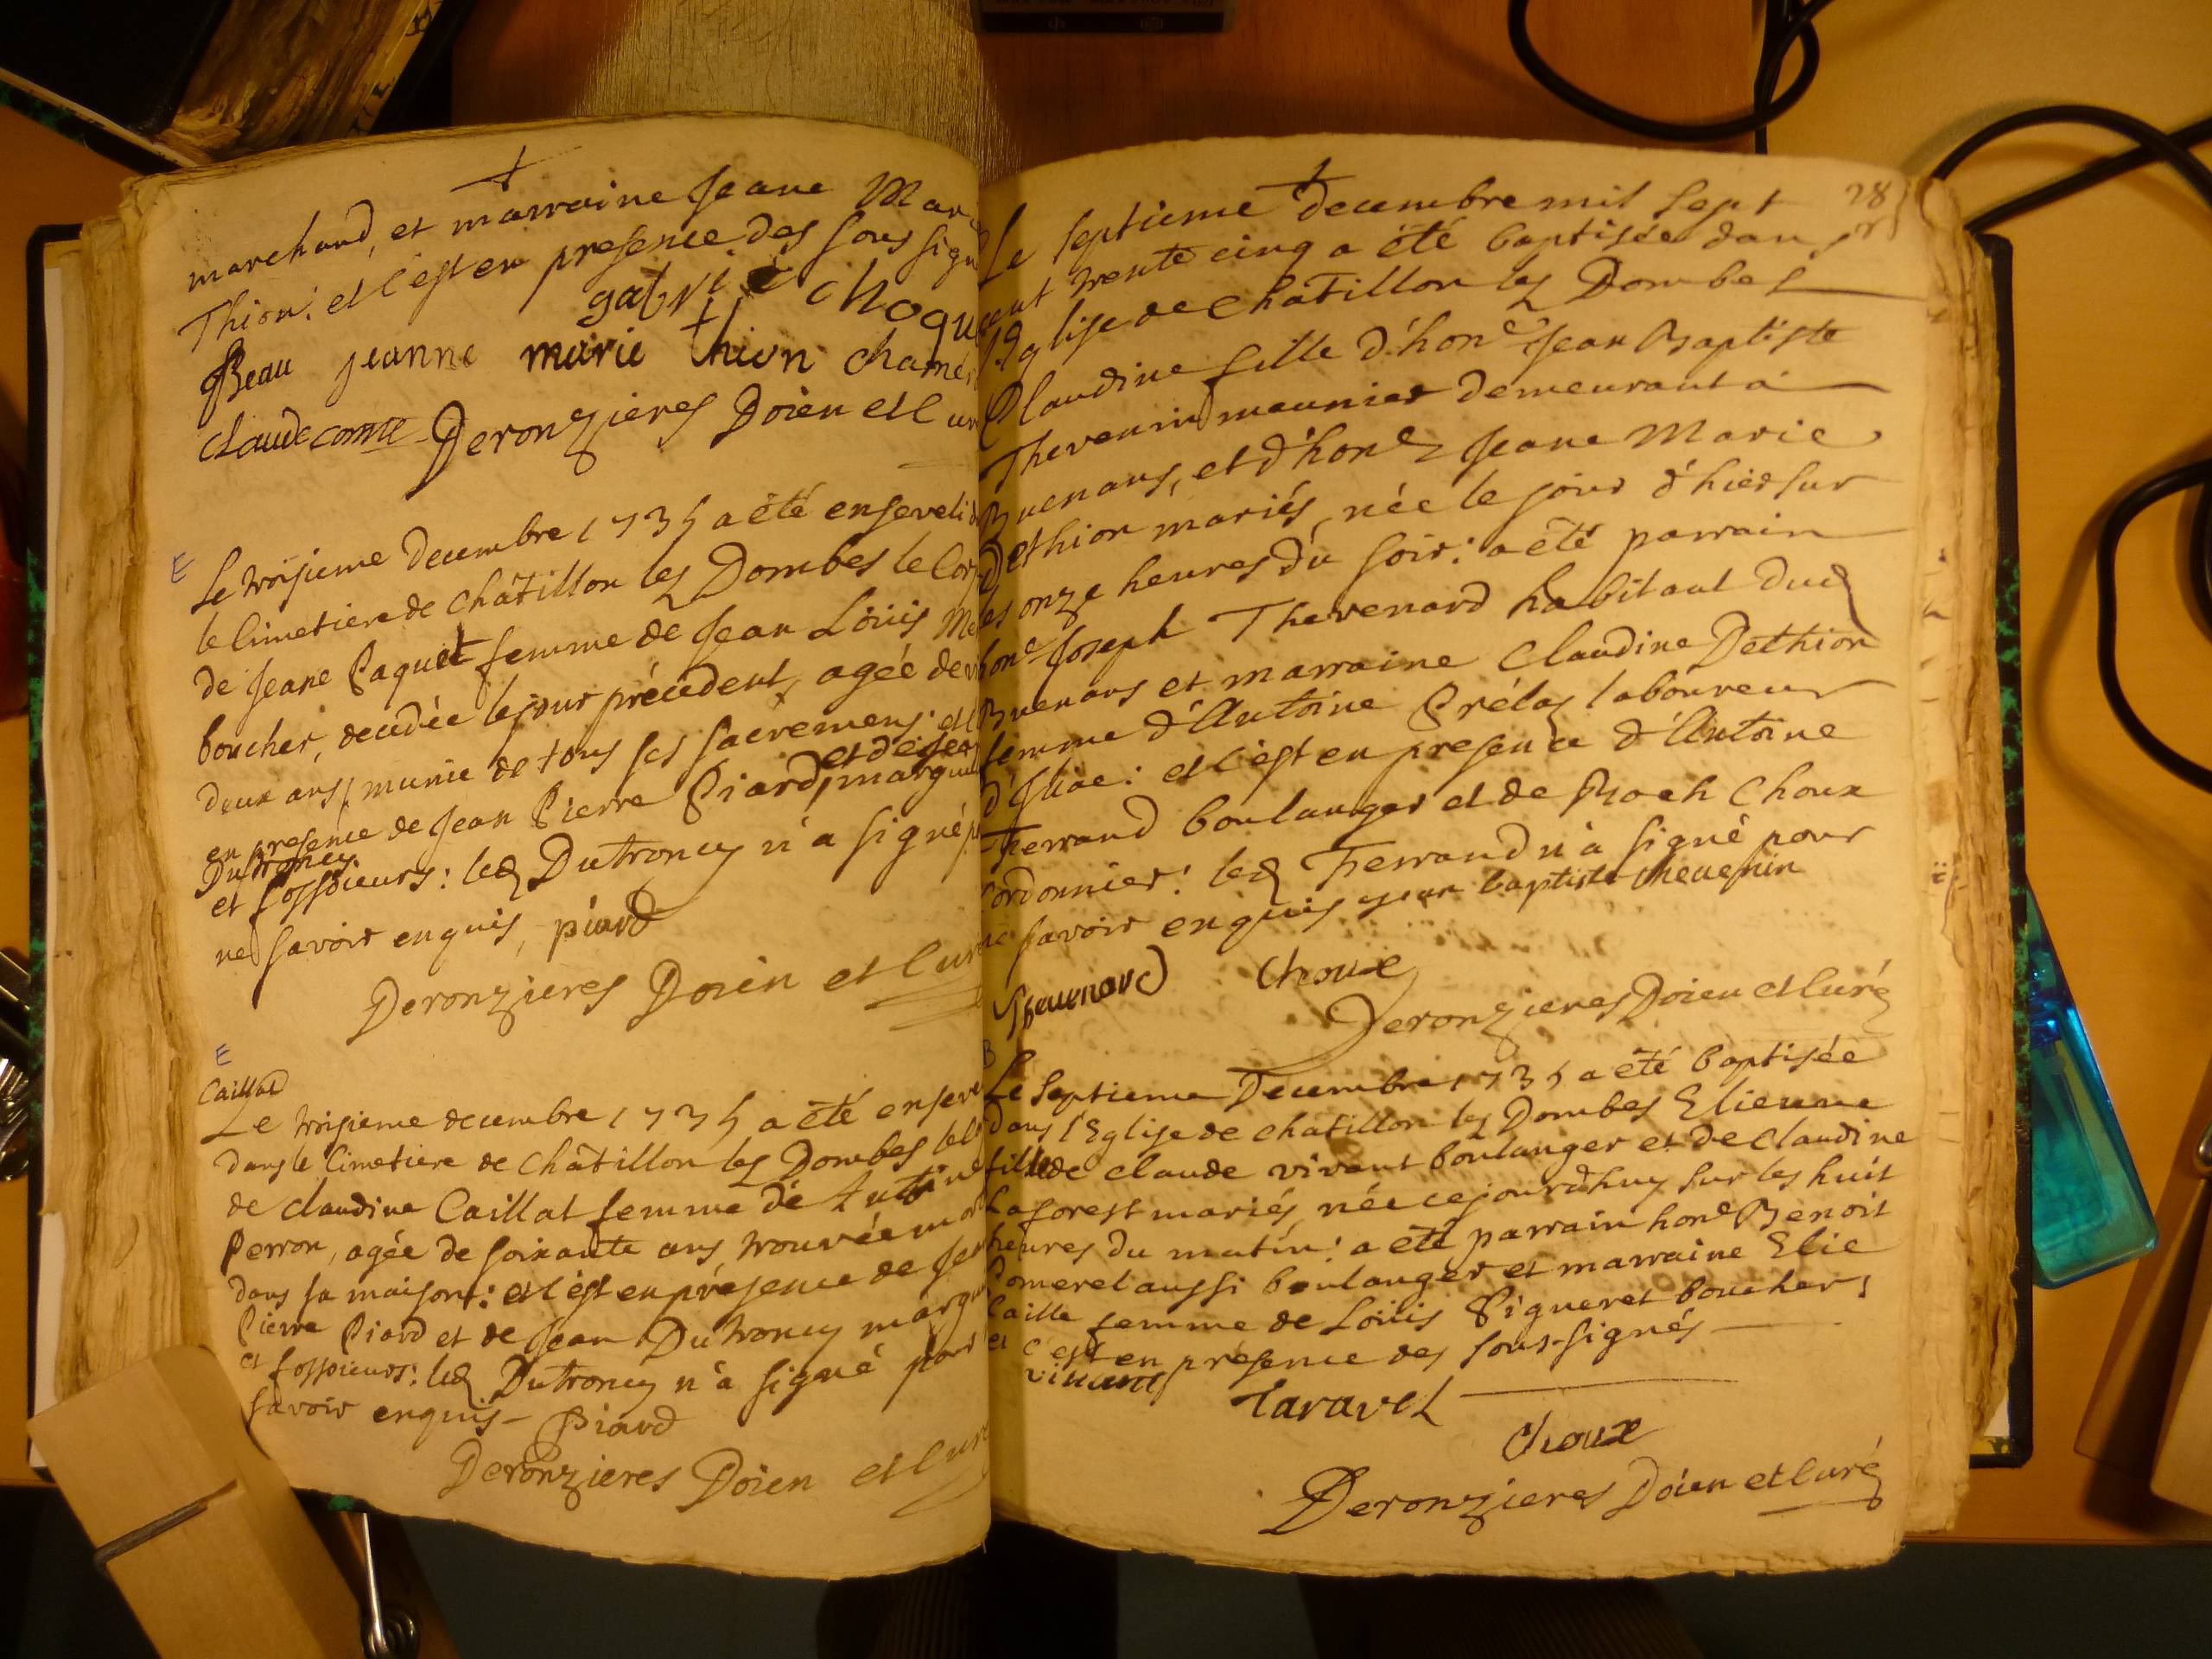 marchand, et marraine Jeane Mar
Thion: et c'est en presence des sous sign
gabriel choqu
Beau jeanne marie thion chamer
claude comte Deronzieres Doien et Cur
E
Le troisieme decembre 1735 a été enseveli d
le Cimetiere de Châtillon les Dombes le Cor
de Jeane Paquet femme de Jean Loüis Me
boucher, decedée le jour précédent, agée de
deux ans, munie de tous ses sacremens: et c
en presence de Jean Pierre Piard, margui
et de Jean
Dutroncy
et fossoieurs: led Dutroncy n'a signé p
ne savoir enquis, piard
Deronzieres Doien et Curé
E
Caillat
Le troisieme decembre 1735 a été enseve
dans le Cimetiere de Châtillon les Dombes le C
de claudine Caillat femme de Antoine
Perron, agée de soixante ans trouvée mor
dans sa maison: et c'est en présence de Jea
Pierre Piard et de Jean Dutroncy margu
et fossoieurs: led Dutroncy n'a signé pour
savoir enquis - Piard
Deronzieres Doien et Cur
28
Le septieme decembre mil sept
cent trente cinq a été baptisée dans
l'Eglise de Châtillon les Dombes
Claudine fille d'hone Jean Baptiste
Thevenin meunier demeurant à
Buenans, et d'hone Jeane Marie
Dethion mariés, née le jour d'hier sur
les onze heures du soir: a été parrain
hone Joseph Thevenard habitant dud
Buenans et marraine Claudine Dethion
femme d'Antoine Prélas laboureur
d'Illiac: et c'est en presence d'Antoine
Ferrand boulanger et de Roch Choux
cordonnier: led Ferrand n'a signé pour
ne savoir enquis jean baptiste thevenin
Theuenard Choux
Deronzieres Doien et Curé
B
Le septieme Decembre 1735 a été baptisée
dans l'Eglise de chatillon les Dombes Elienne
fille de claude vivant boulanger et de claudine
Laforest mariés, née cejourd'huy sur les huit
heures du matin: a été parrain hone Benoit
Pomeret aussi boulanger et marraine Elie
Caille femme de Loüis Pigneret boucher;
et c'est en presence des sous-signés
vivant Taravel
choux
Deronzieres Doien et Curé